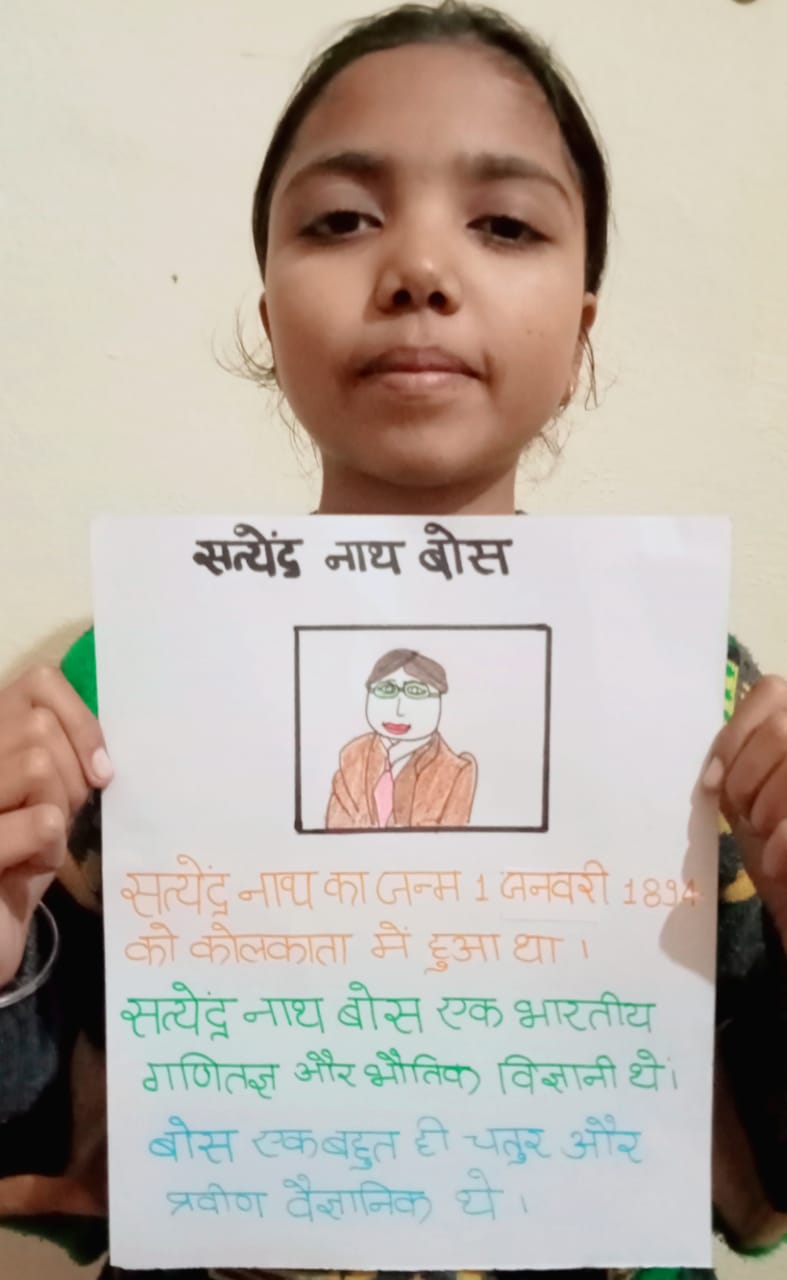 सत्येंद्र नाथ बोस
सत्येंद्र नाथ का जन्म 1 जनवरी 1894
को कोलकाता में हुआ था।
सत्येंद्र नाथ बोस एक भारतीय
गणितज्ञ और भौतिक विज्ञानी थे।
बोस एक बहुत ही चतुर और
प्रवीण वैज्ञानिक थे।